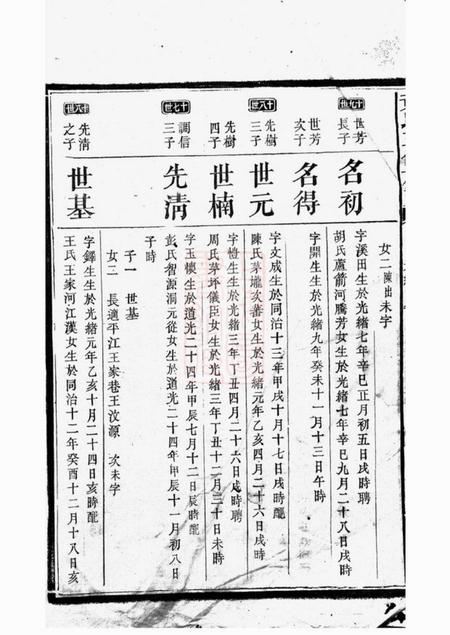 女二陳出未字
十九世
世芳長子
名初
字溪田生於光緒七年辛巳正月初五日戌時聘
胡氏蘆箭河騰芳女生於光緒七年辛巳九月二十八日戌時
世芳次子
名得
字開生生於光緒九年癸未十一月十三日午時
十八世
先樹三子
世元
字文成生於同治十三年甲戌十月十七日戌時配
陳氏茅瀧次善女生於光緒元年乙亥四月二十六日戌時
先樹四子
世楠
字愷生生於光緒三年丁丑四月二十六日戌時聘
周氏茅坪儀臣女生於光緒三年丁丑十二月三十日未時
十七世
調信三子
先清
字玉懷生於道光二十四年甲辰七月十二日辰時配
彭氏智源洞元從女生於道光二十四年甲辰十一月初八日
子時
子一 世基
女二 長適平江王家巷王汶源 次未字
十八世
先清之子
世基
字鐸生生於光緒元年乙亥十月二十四日亥時配
王氏王家河江漢女生於同治十二年癸酉十二月十八日亥